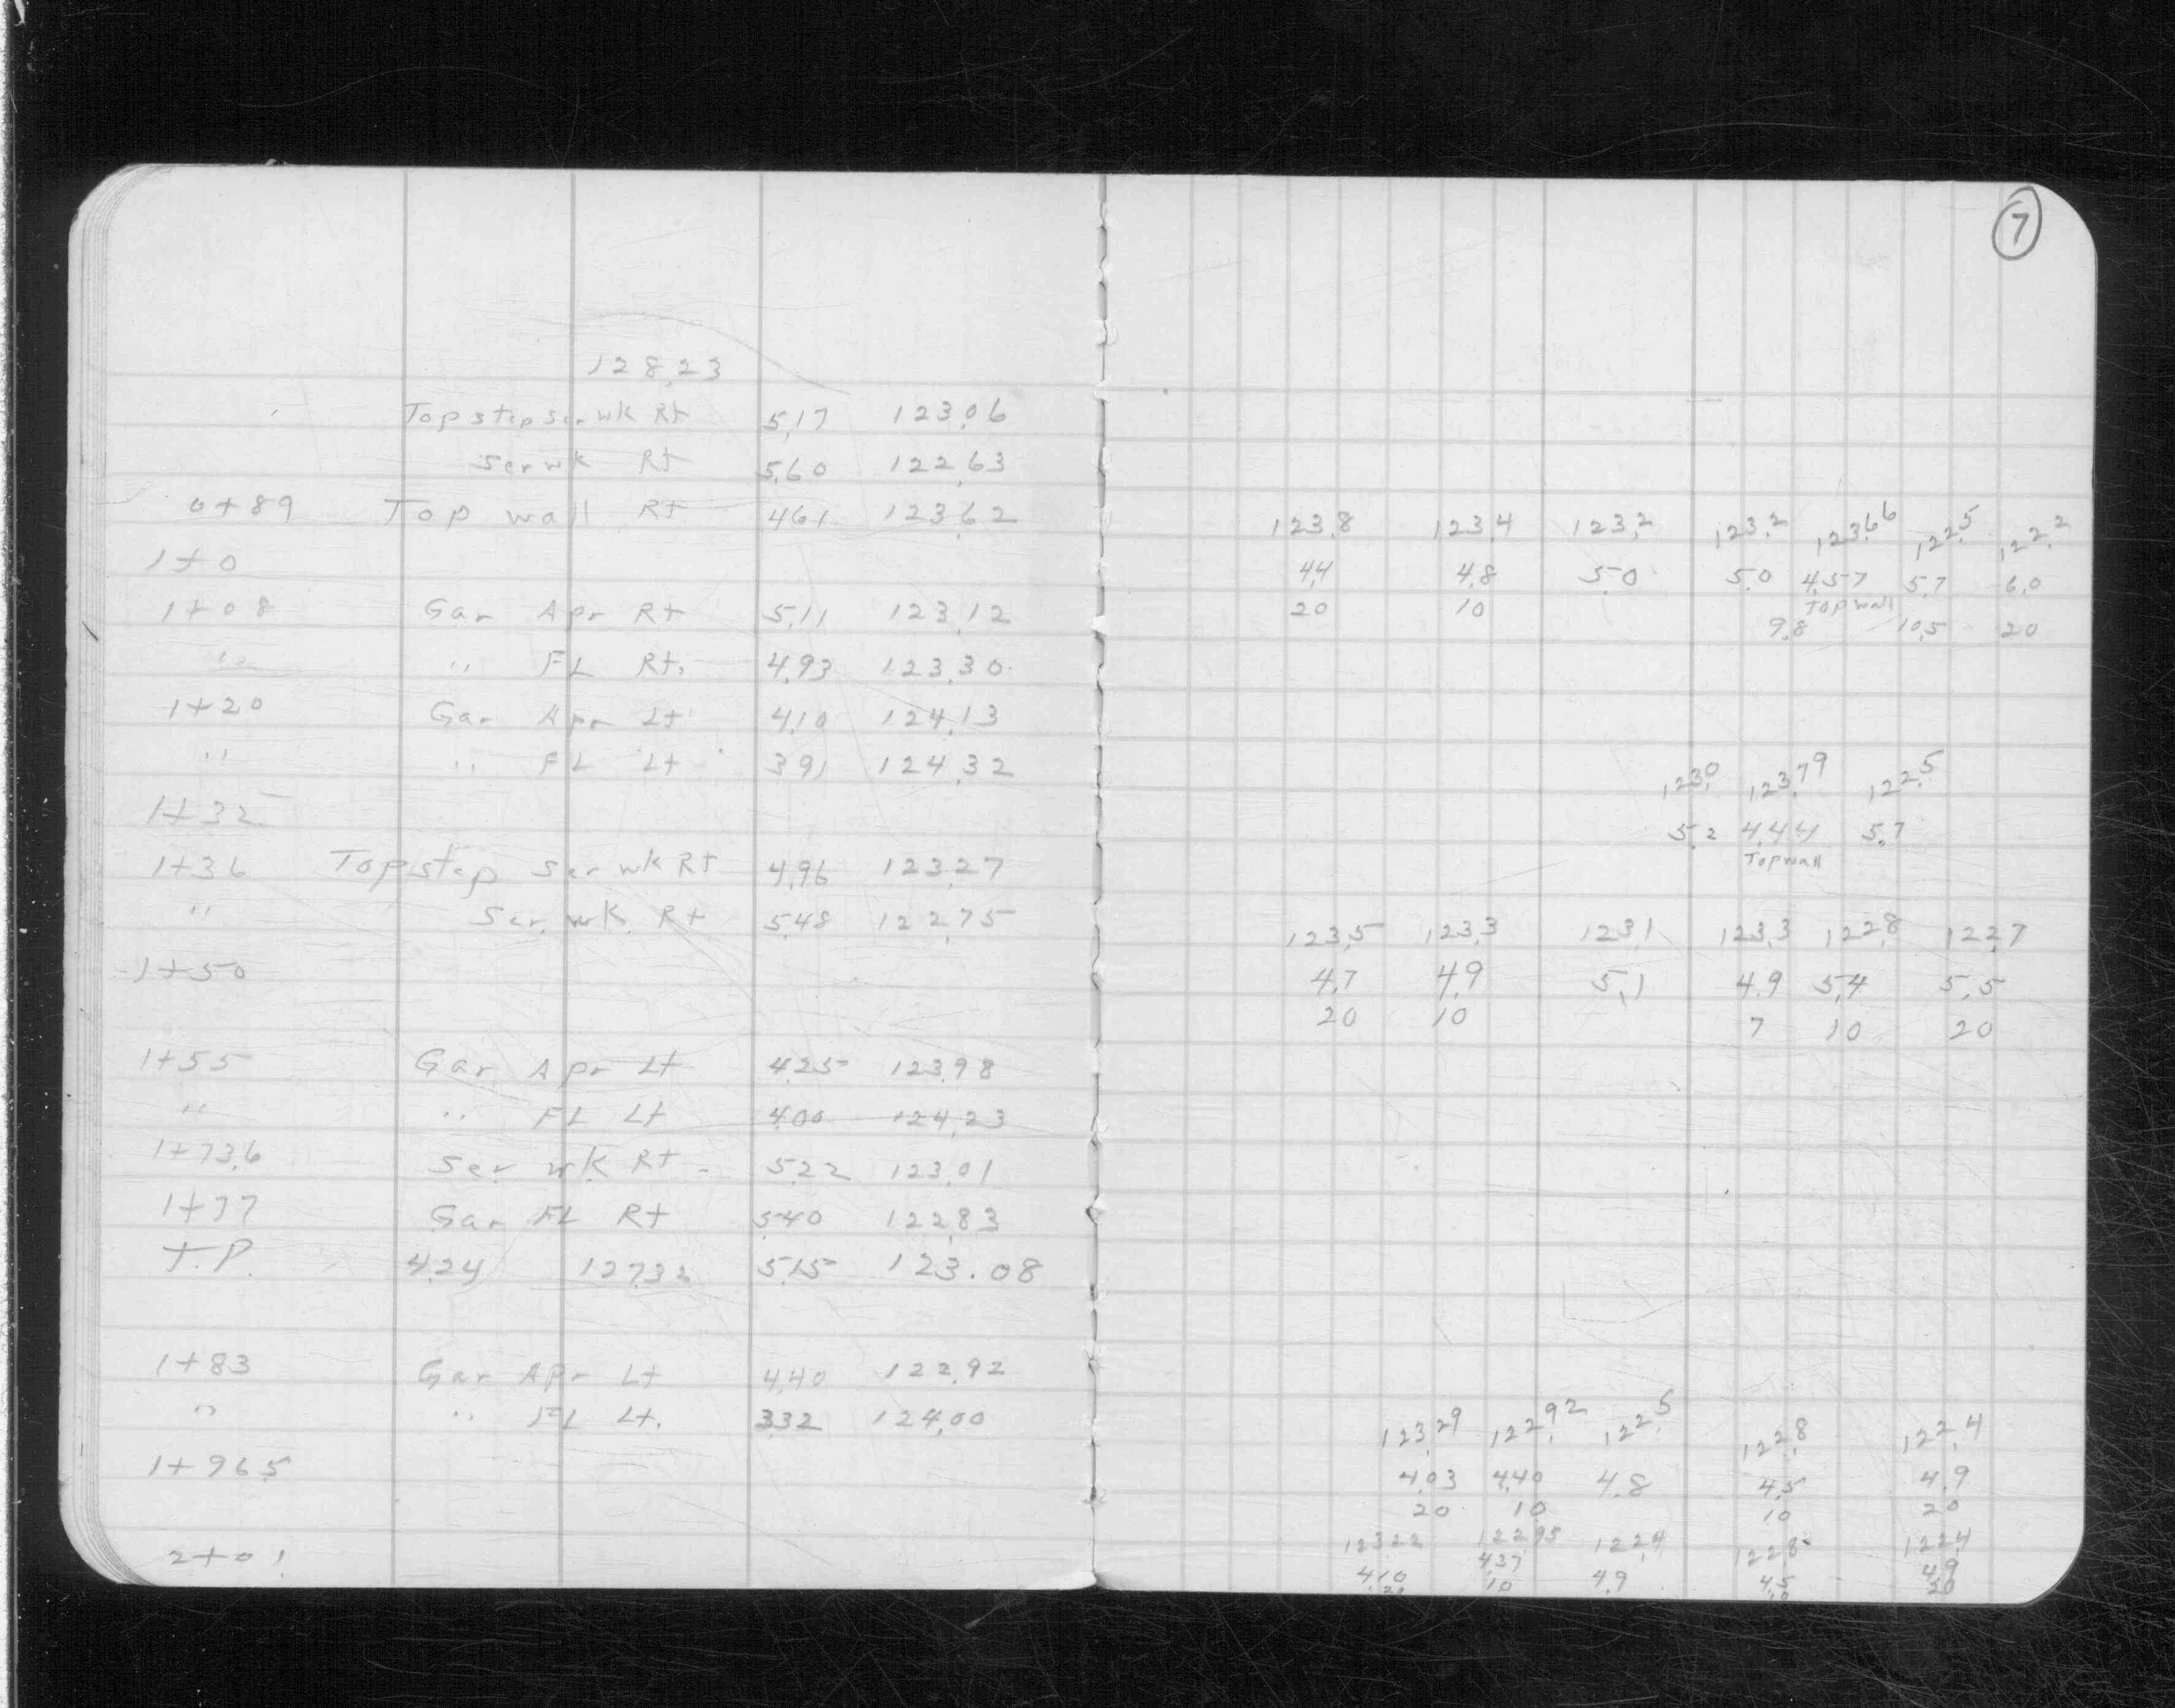 7
128.23
Top step ser wk Rt 5.17 123.06
Ser wk Rt 5.60 122.63
0+89 Top wall Rt 4.61 123.62
1+0
123.8 123.4 123.2 123.2 123.66 122.5 122.2
4.4 4.8 5.0 5.0 4.57 5.7 6.0
20 10 Top wall
9.8 10.5 20
1+08 Gar Apr Rt 5.11 123.12
" " FL Rt. 4.93 123.30
1+20 Gar Apr Lt 4.10 124.13
" " FL Lt 3.91 124.32
1+32
123.0 123.79 122.5
5.2 4.44 5.7
Top wall
1+36 Top step ser wk Rt 4.96 123.27
" Ser. wk. Rt 5.48 122.75
1+50
123.5 123.3 123.1 123.3 122.8 122.7
4.7 4.9 5.1 4.9 5.4 5.5
20 10 7 10 20
1+55 Gar Apr Lt 4.25 123.98
" " FL Lt 4.00 124.23
1+73.6 Ser wk Rt 5.22 123.01
1+77 Gar FL Rt 5.40 122.83
T.P. 4.24 127.32 5.15 123.08
1+83 Gar Apr Lt 4.40 122.92
" " FL Lt. 3.32 124.00
1+96.5
123.29 122.92 122.5 122.8 122.4
4.03 4.40 4.8 4.5 4.9
20 10 10 20
2+01
123.22 122.95 122.4 122.8 122.4
4.10 4.37 4.9 4.5 4.9
20 10 10 20